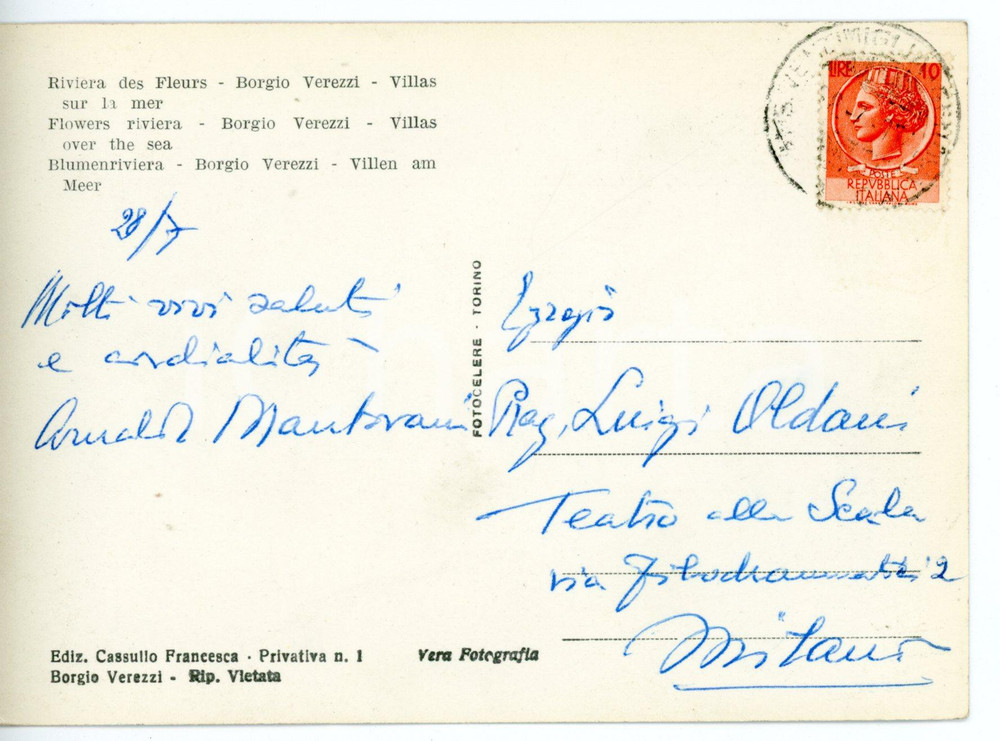 Riviera des Fleurs - Borgio Verezzi - Villas
sur la mer
Flowers riviera - Borgio Verezzi - Villas
over the sea
Blumenriviera - Borgio Verezzi - Villen am
Meer
28/7
Molti vivi saluti
e cordialità
Arnaldo Mantovani
FOTOCELERE - TORINO
LIRE 10
POSTE
REPVBBLICA
ITALIANA
Egregio
Rag. Luigi Oldani
Teatro alla Scala
via Filodrammatici 2
Milano
Ediz. Cassullo Francesca - Privativa n. 1
Borgio Verezzi - Rip. Vietata
Vera Fotografia